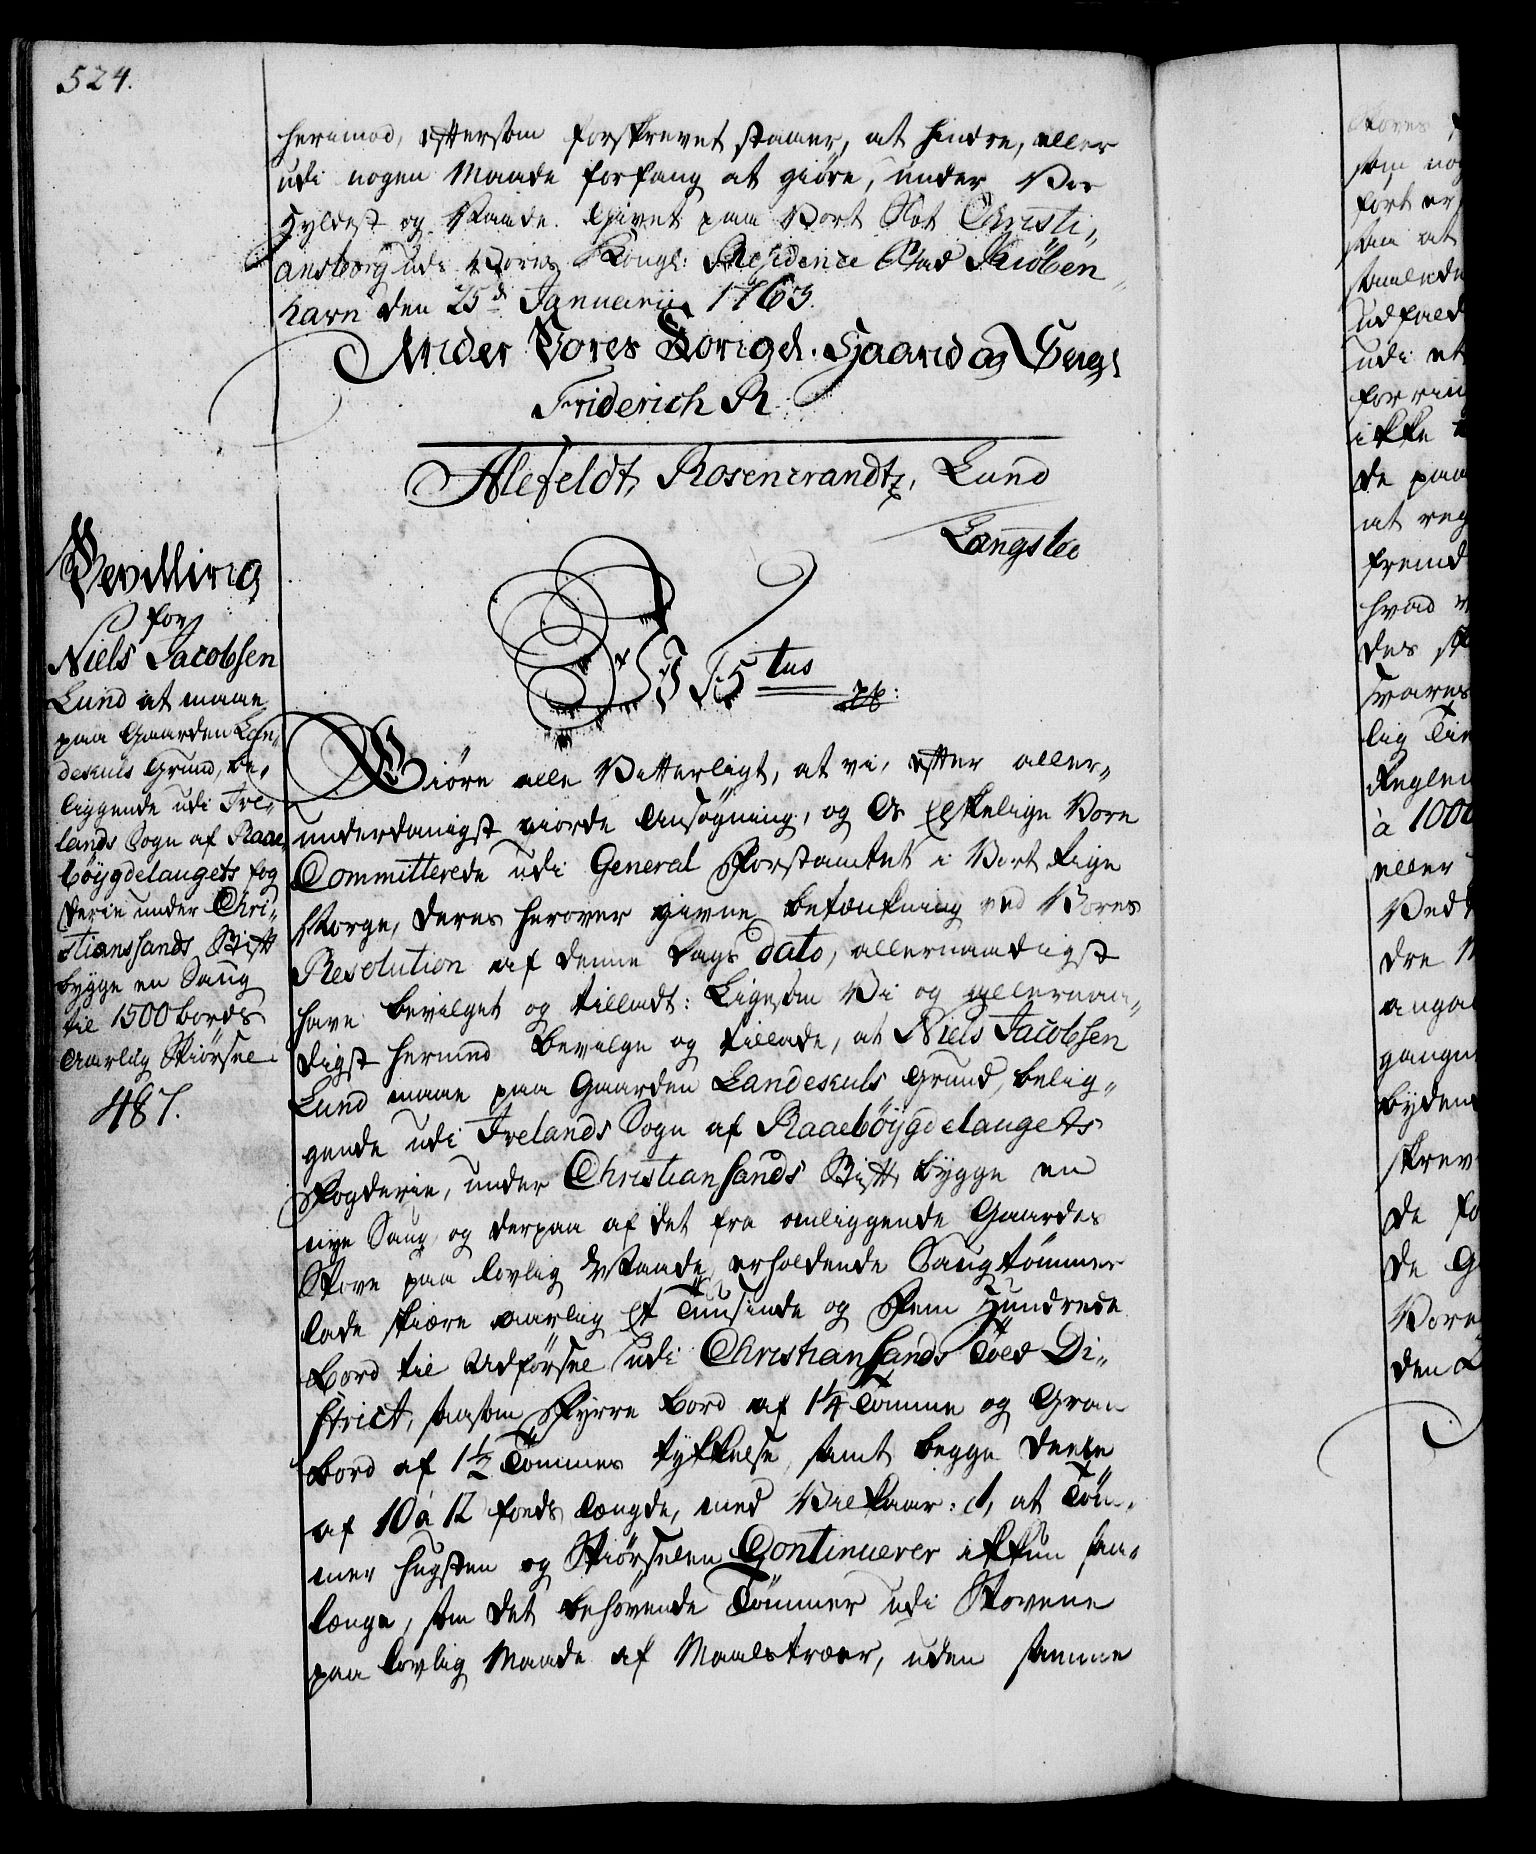 524.
herimod, eftersom forskrevet staaer, at hindre, eller
udi nogen Maade forfang at giöre, under Vor
Hyldest og Naade. Givet paa Vort Slot Christi„
ansborg udi Vores Kongl: Residence Stad Kiöben„
havn den 25de Januarii 1763.
Under Vores Kongel. Haand og Segl
Friderich R
Alefeldt, Rosencrandtz, Lund
Langsted
Bevilling
for
Niels Jacobsen
Lund at maae
paa Gaarden Lan„
deskuls Grund, be„
liggende udi Ive„
lands Sogn af Raae
böygdelaugets fog
derie under Chri„
stianssands Stift
bÿgge en Saug
til 1500 bords
Aarlig Skiörsel
487.
Vi F 5tus
Giöre alle Vitterligt, at vi, efter aller„
underdanigst giorde Ansögning, og Os Elskelige Vore
Committerede udi General Forstamtet i Vort Rige
Norge, deres herover givne betænkning ved Vores
Resolution af denne Dags dato, allernaadigst
have bevilget og tilladt: Ligesom Vi og allernaa„
digst hermed bevilge og tillade, at Niels Jacobsen
Lund maae paa Gaarden Landeskuls Grund, belig„
gende udi Ivelands Sogn af Raaeböÿgdelaugets
Fogderie, under Christiansands Stift, bÿgge en
nye Saug, og derpaa af det fra omliggende Gaardes
Skove paa lovlig Maade erholdende Saugtömmer
lade skiære aarlig Et Tuusinde og Fem Hundrede
Bord til Udförsel udi Christiansands Told Di„
strict, saasom Fyrre bord af 1¼ Tomme og Gran
bord af 1½ Tommes tykkelse, samt begge Deele
af 10 à 12 fods Længde, med Vilkaar: 1, at Töm„
mer hugsten og Skiörselen Continuerer ikkun saa„
længe, som det behövende Tömmer udi Skovene
paa lovlig Maade af Maalstræer, uden samme